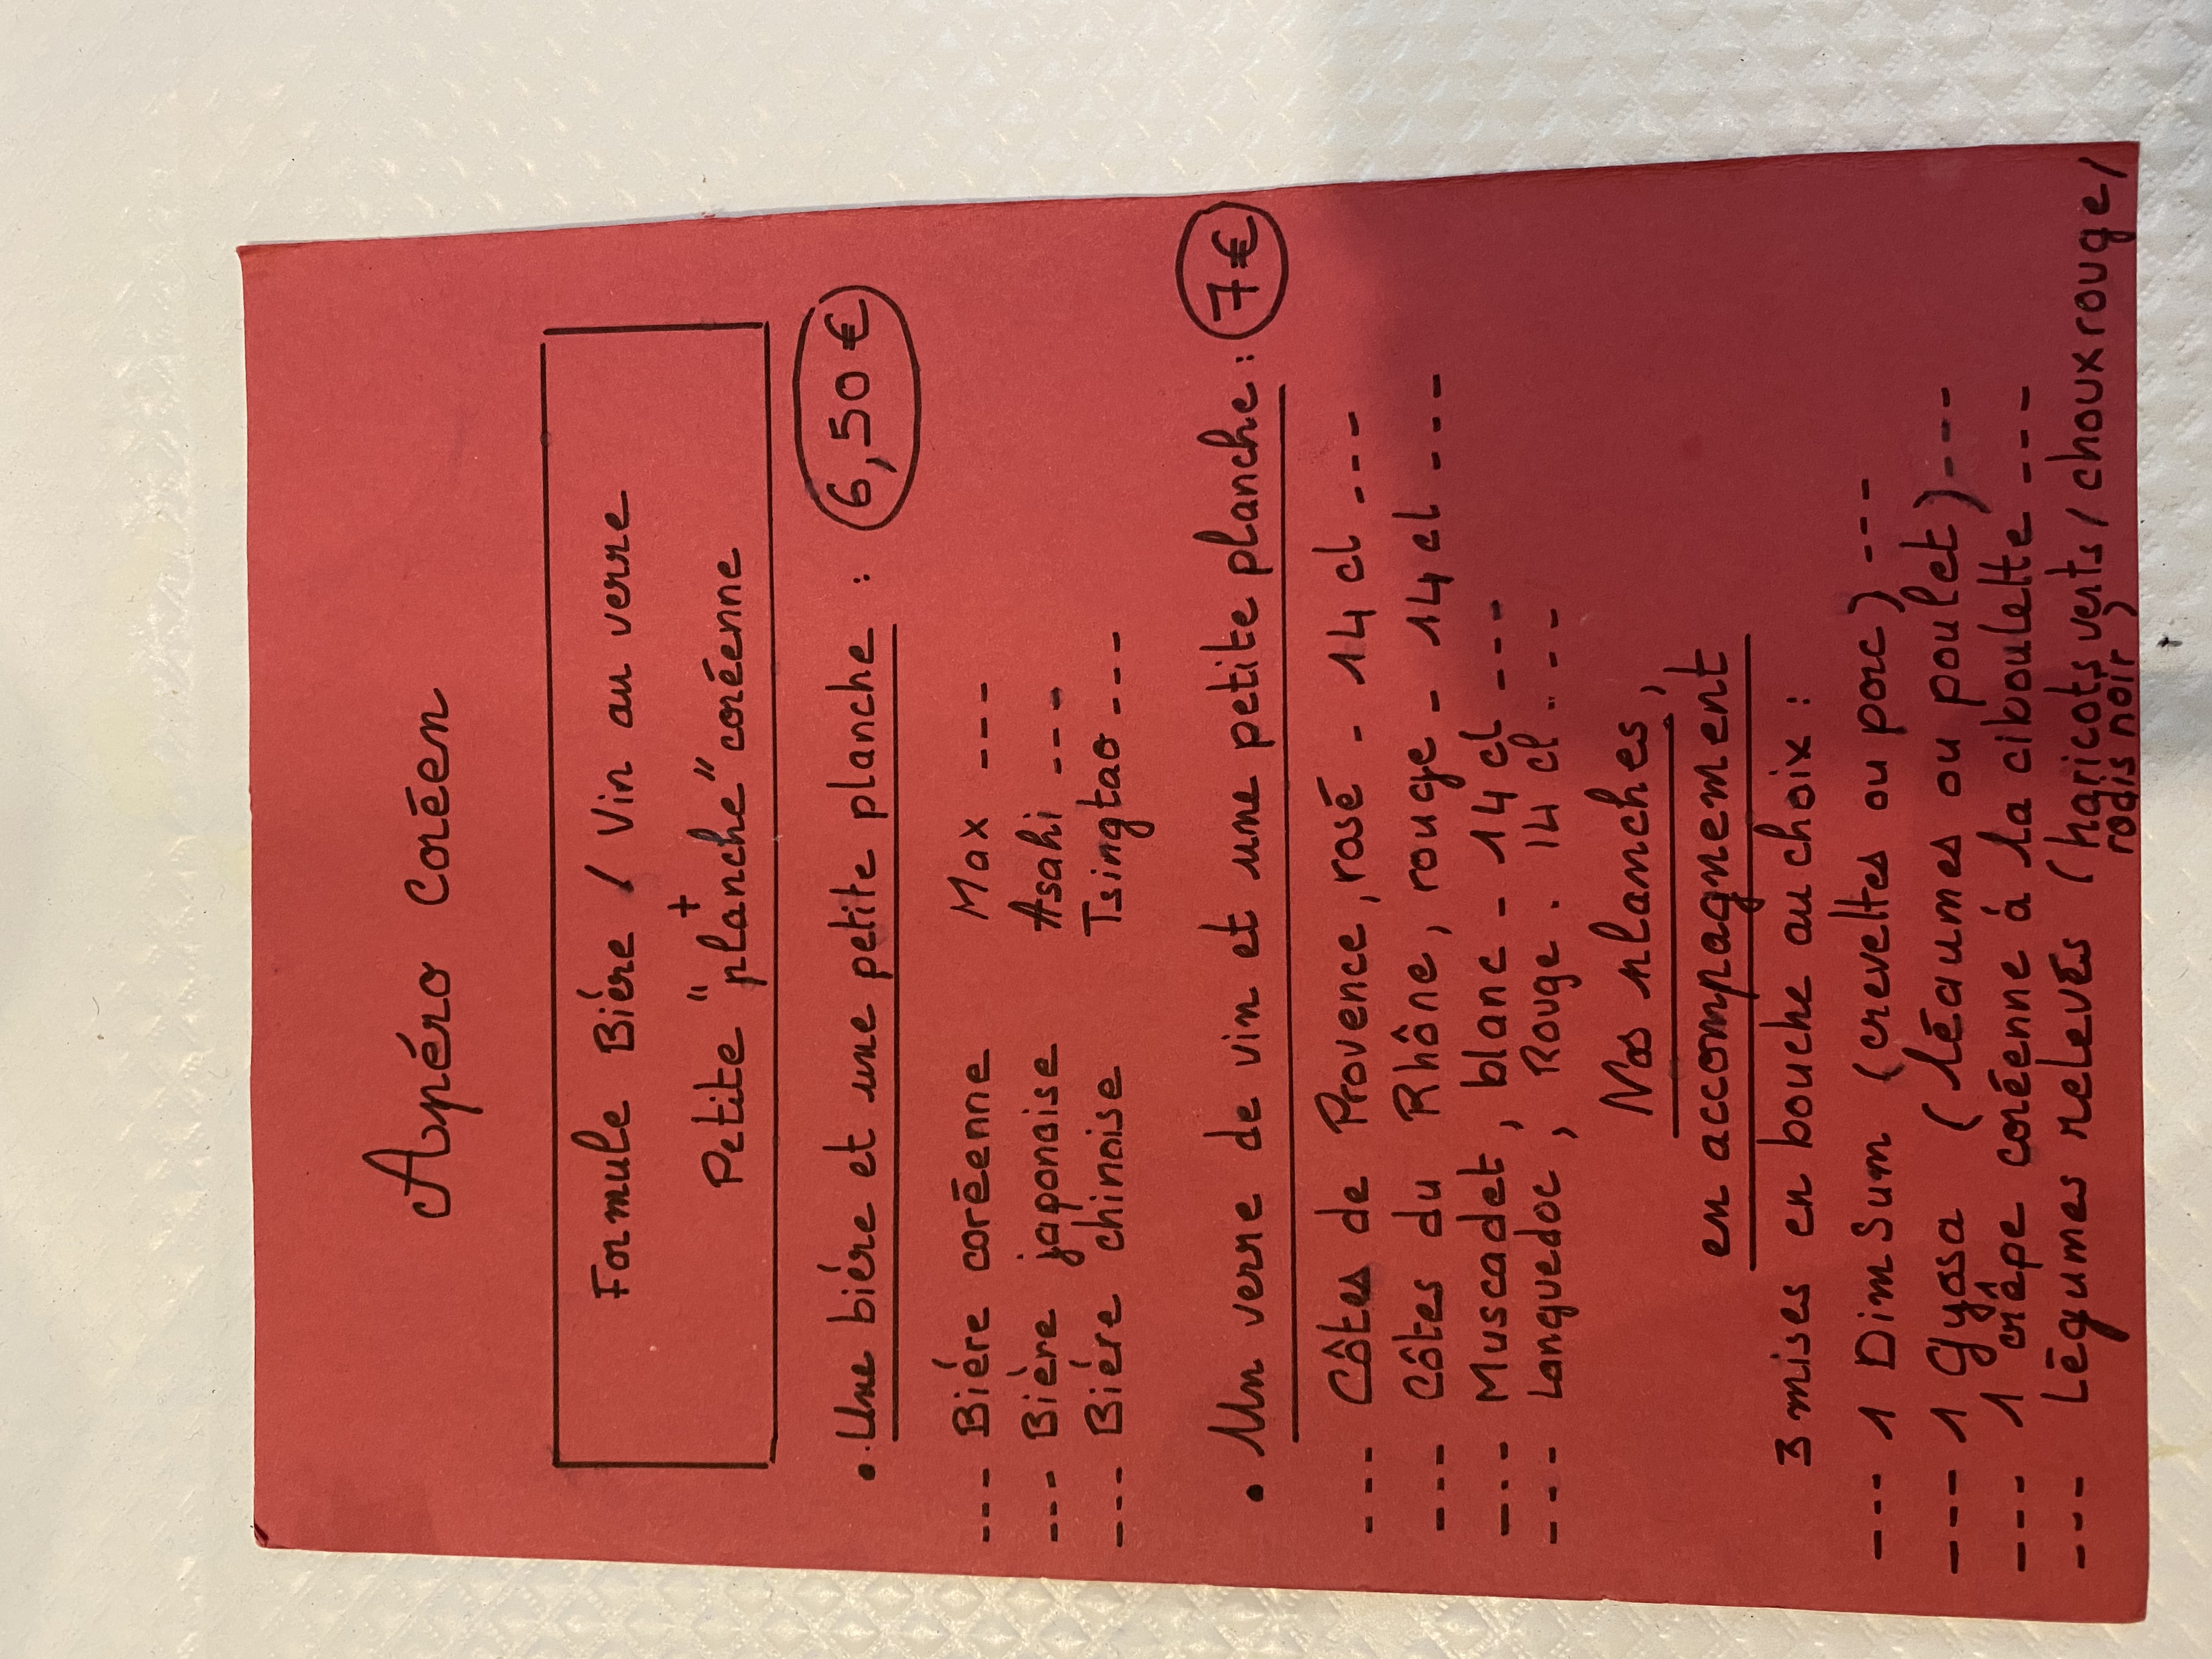 Apéro coréen
Formule Bière / Vin au verre
+
Petite "planche" coréenne
• Une bière et une petite planche : 6,50 €
--- Bière coréenne Max ---
--- Bière japonaise Asahi ---
--- Bière chinoise Tsingtao ---
• Un verre de vin et une petite planche : 7 €
--- Côtes de Provence, rosé - 14 cl ---
--- Côtes du Rhône, rouge - 14 cl ---
--- Muscadet, blanc - 14 cl ---
--- Languedoc, Rouge. 14 cl ---
Nos planches,
en accompagnement
3 mises en bouche au choix :
--- 1 Dim Sum (crevettes ou porc) ---
--- 1 Gyosa (légumes ou poulet) ---
--- 1 crêpe coréenne à la ciboulette ---
--- Légumes relevés (haricots verts / choux rouge /
radis noir)